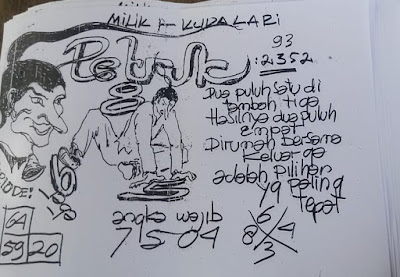 MILIK KUDA LARI
93
: 2352
Dua puluh satu di
tambah tiga
Hasilnya dua puluh
empat
Dirumah Bersama
Keluarga
adalah pilihan
yg paling
tepat
KODE:
64
59 20
angka wajib
7-5-0-4
6
8 4
3